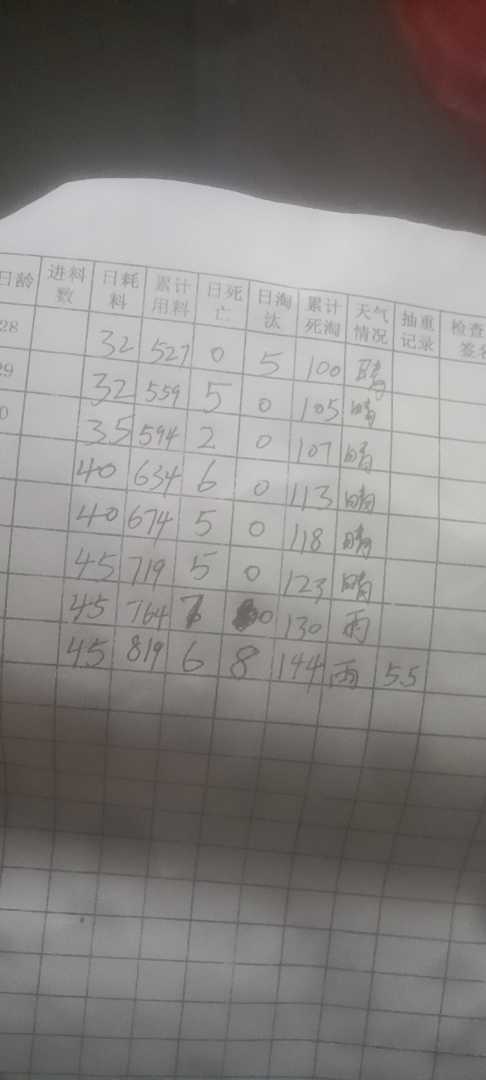 日龄 进料数 日耗料 累计用料 日死亡 日淘汰 累计死淘 天气情况 抽重记录 检查 签名
28 32 527 0 5 100 晴
29 32 559 5 0 105 晴
0 35 594 2 0 107 晴
40 634 6 0 113 晴
40 674 5 0 118 晴
45 719 5 0 123 晴
45 764 7 0 130 雨
45 819 6 8 144 雨 5.5